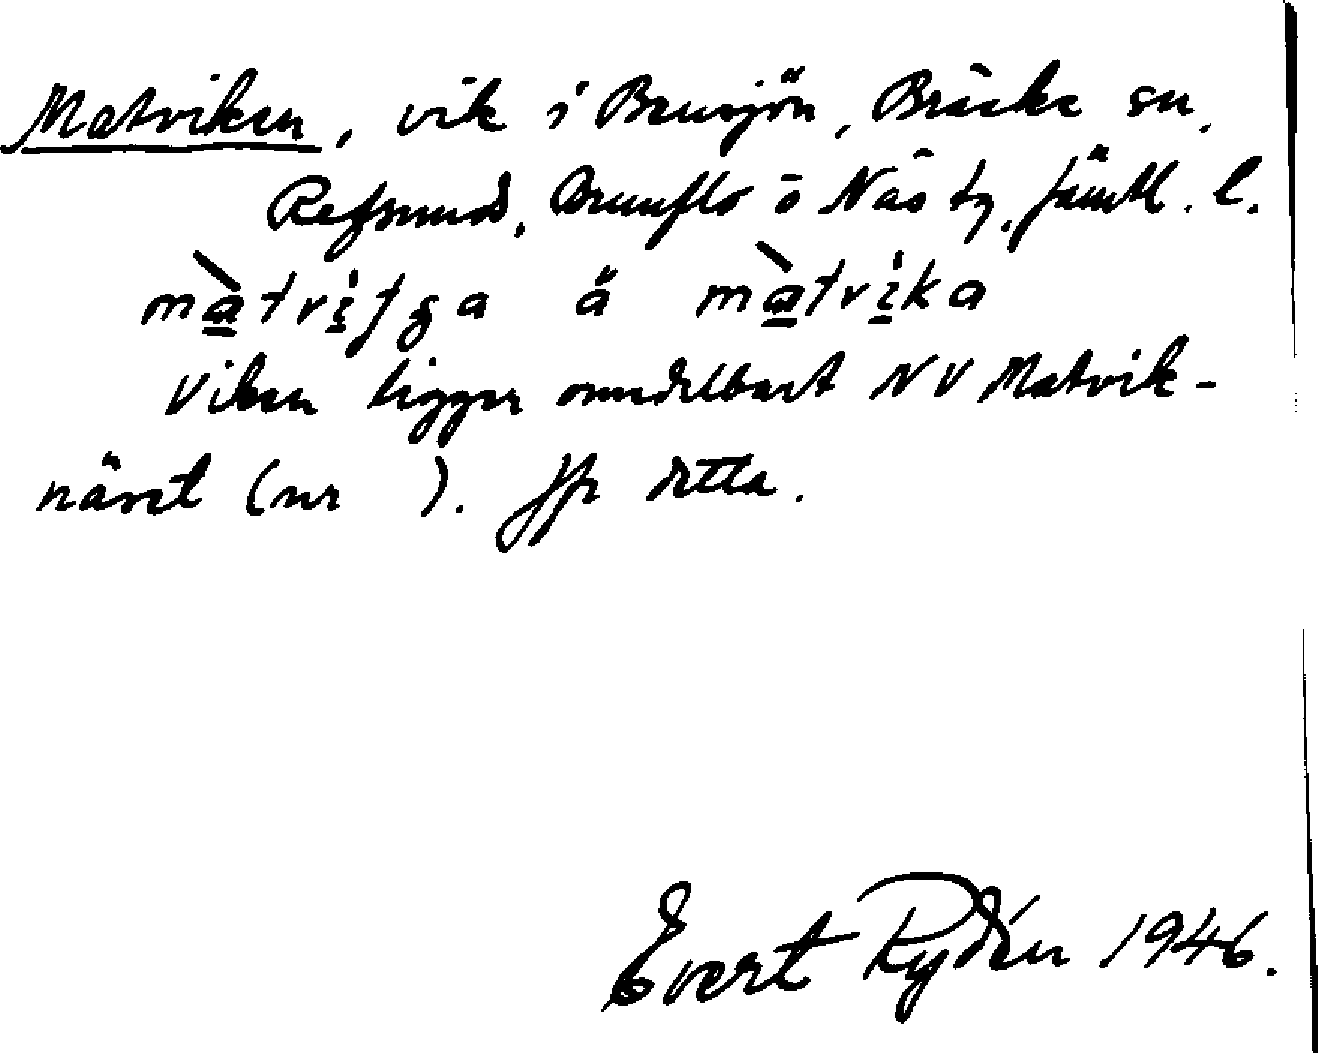 Matviken, vik i Bensjön, Bräcke sn,
Refsund, Brunflo o Näs tg, Jämtl. l.
ma̲trı̲fʒa å ma̲trı̲ka
Viken ligger omedelbart NV Matvik-
näset (nr ). Jfr detta.
Evert Rydén 1946.